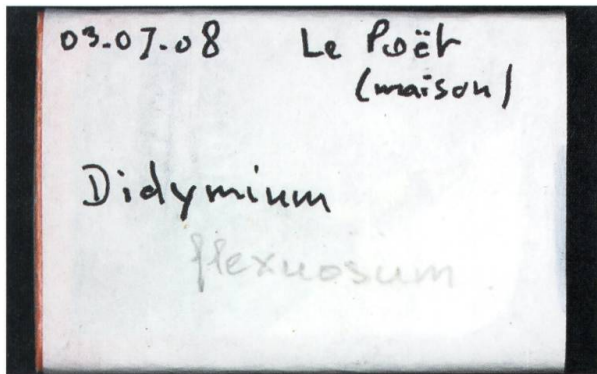 03.07.08 Le Poët
(maison)
Didymium
flexuosum